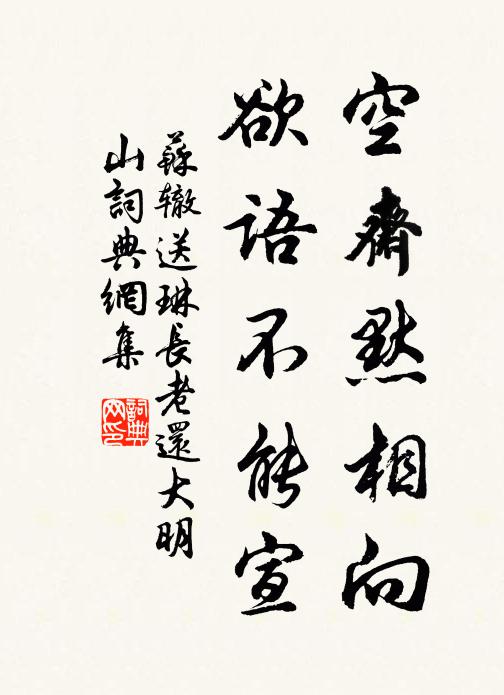 空齋默相向
欲語不能宣
蘇轍送琳長老還大明
山詞典網集
詞典
网印